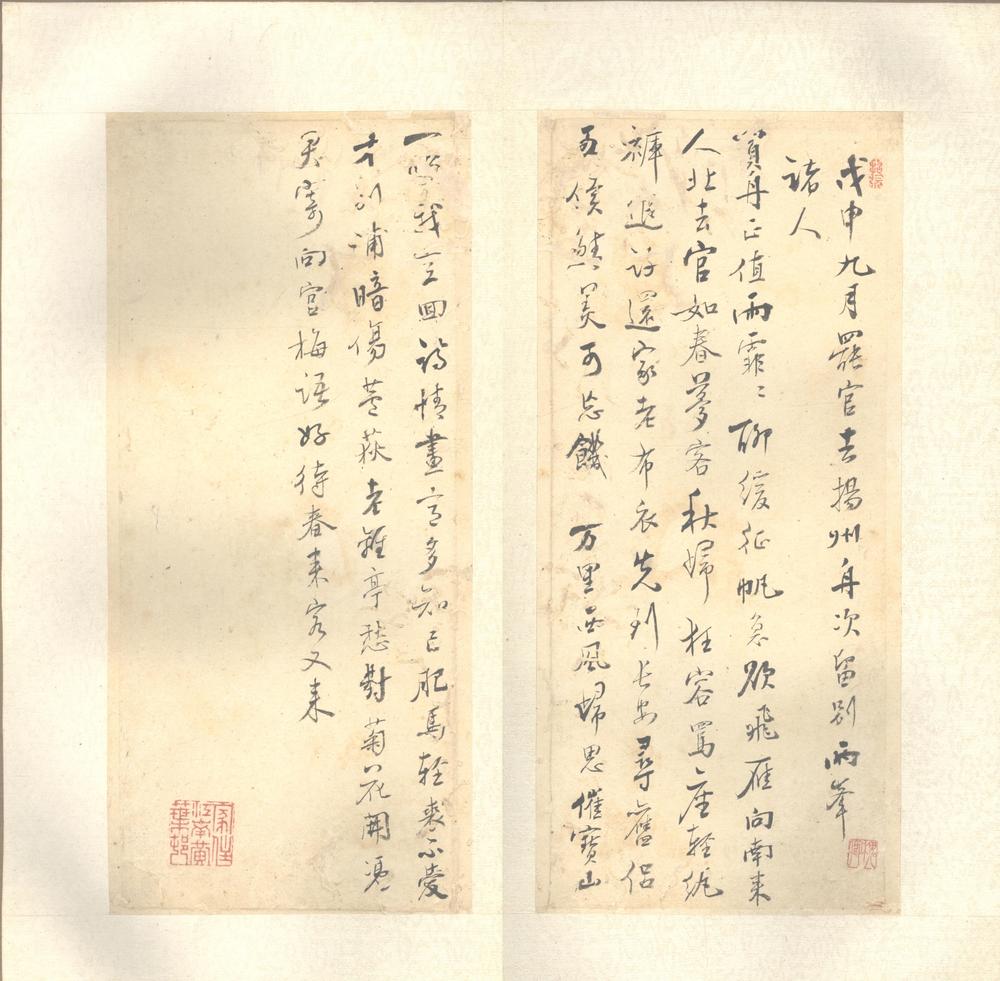 戊申九月罷官去揚州舟次留別兩峯
諸人
買舟正值雨霏〻聊緩征帆急欲飛雁向南来
人北去官如春夢客秋歸狂容罵座輕紈
褲近許還家老布衣先到長安尋舊侶
五侯鯖美可忘饑 万里西風歸思催寶山
一 我空回詩情畫意多知己肥馬輕裘不愛
才別浦暗傷蘆荻老離亭愁對菊花開凴
君寄向官梅語好待春来客又来
家住江南黃葉邨